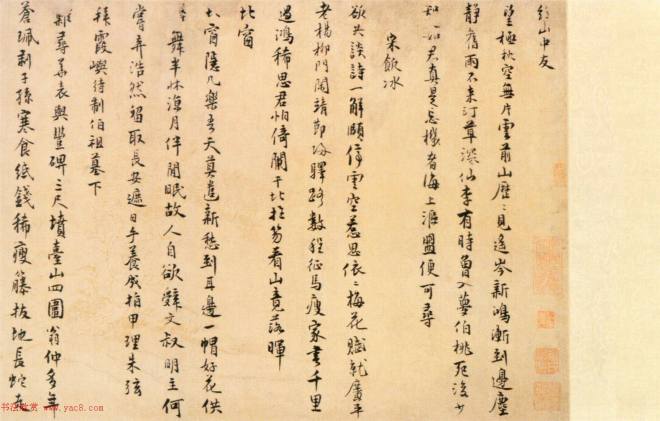 望極秋空無片雲前山歷歷見遙岑新鴻漸到邊塵
靜舊雨不來汀草深仙李有時曾入夢伯桃死後少
知心君真是忘機者海上漚盟便可尋
宋飲冰
欲共談詩一解頤停雲空惹思依依梅花賦就廣平
老楊柳門閑靖節歸驛路數程征馬瘦家書千里
過鴻稀思君怕倚闌干北拄笏看山竟落暉
北窗
北窗隱几樂吾天莫遣新愁到耳邊一帽好花供
舞半牀涼月伴閒眠故人自欲辭文叔明主何
嘗弃浩然招取長安遮日手養成指甲理朱弦
拜霞嶼待制伯祖墓下
難尋華表與豐碑三尺墳臺山四圍翁仲多年
蒼珮剥子孫寒食紙錢稀瘦藤拔地長蛇
书法欣赏 www.yac8.com